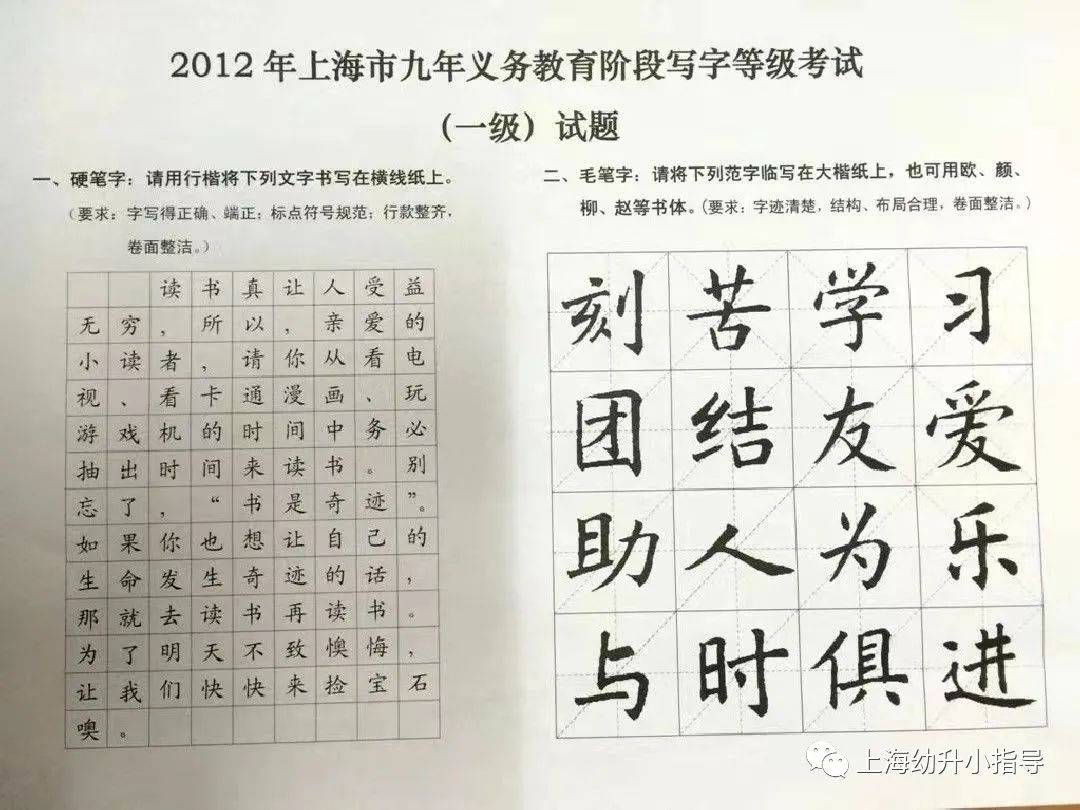 2012年上海市九年义务教育阶段写字等级考试
（一级）试题
一、硬笔字：请用行楷将下列文字书写在横线纸上。
（要求：字写得正确、端正；标点符号规范；行款整齐，
卷面整洁。）
读书真让人受益
无穷，所以，亲爱的
小读者，请你从看电
视、看卡通漫画、玩
游戏机的时间中务必
抽出时间来读书。别
忘了，“书是奇迹”。
如果你也想让自己的
生命发生奇迹的话，
那就去读书再读书。
为了明天不致懊悔，
让我们快快来捡宝石
噢。
二、毛笔字：请将下列范字临写在大楷纸上，也可用欧、颜、
柳、赵等书体。（要求：字迹清楚，结构、布局合理，卷面整洁。）
刻苦学习
团结友爱
助人为乐
与时俱进
上海幼升小指导